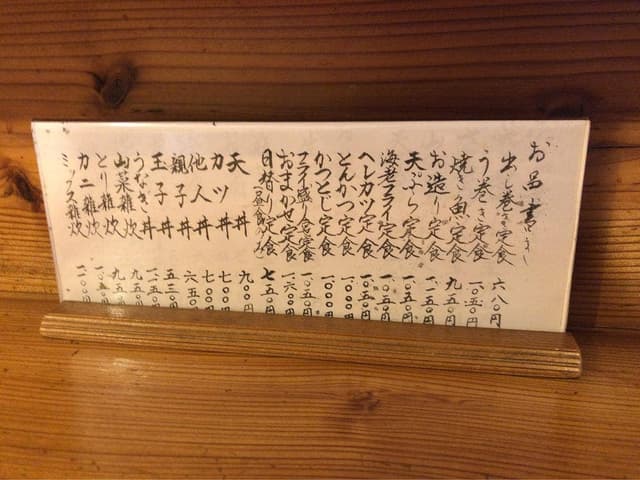 お品書き
出し巻き定食 六八〇円
う巻き定食 一〇五〇円
焼き魚定食 九五〇円
お造り定食 一二五〇円
天ぷら定食 一〇五〇円
海老フライ定食 一〇五〇円
ヘレカツ定食 一〇五〇円
とんかつ定食 一〇〇〇円
かつとじ定食 一〇〇〇円
フライ盛り合せ定食 一〇五〇円
おまかせ定食 一六〇〇
日替り定食(昼食のみ) 七五〇円
天丼 九〇〇円
カツ丼 七〇〇円
他人丼 七〇〇円
親子丼 六五〇円
玉子丼
うなぎ丼 一二五〇円
山菜雑炊 九五〇円
とり雑炊 九五〇円
カニ雑炊 一〇五〇円
ミックス雑炊